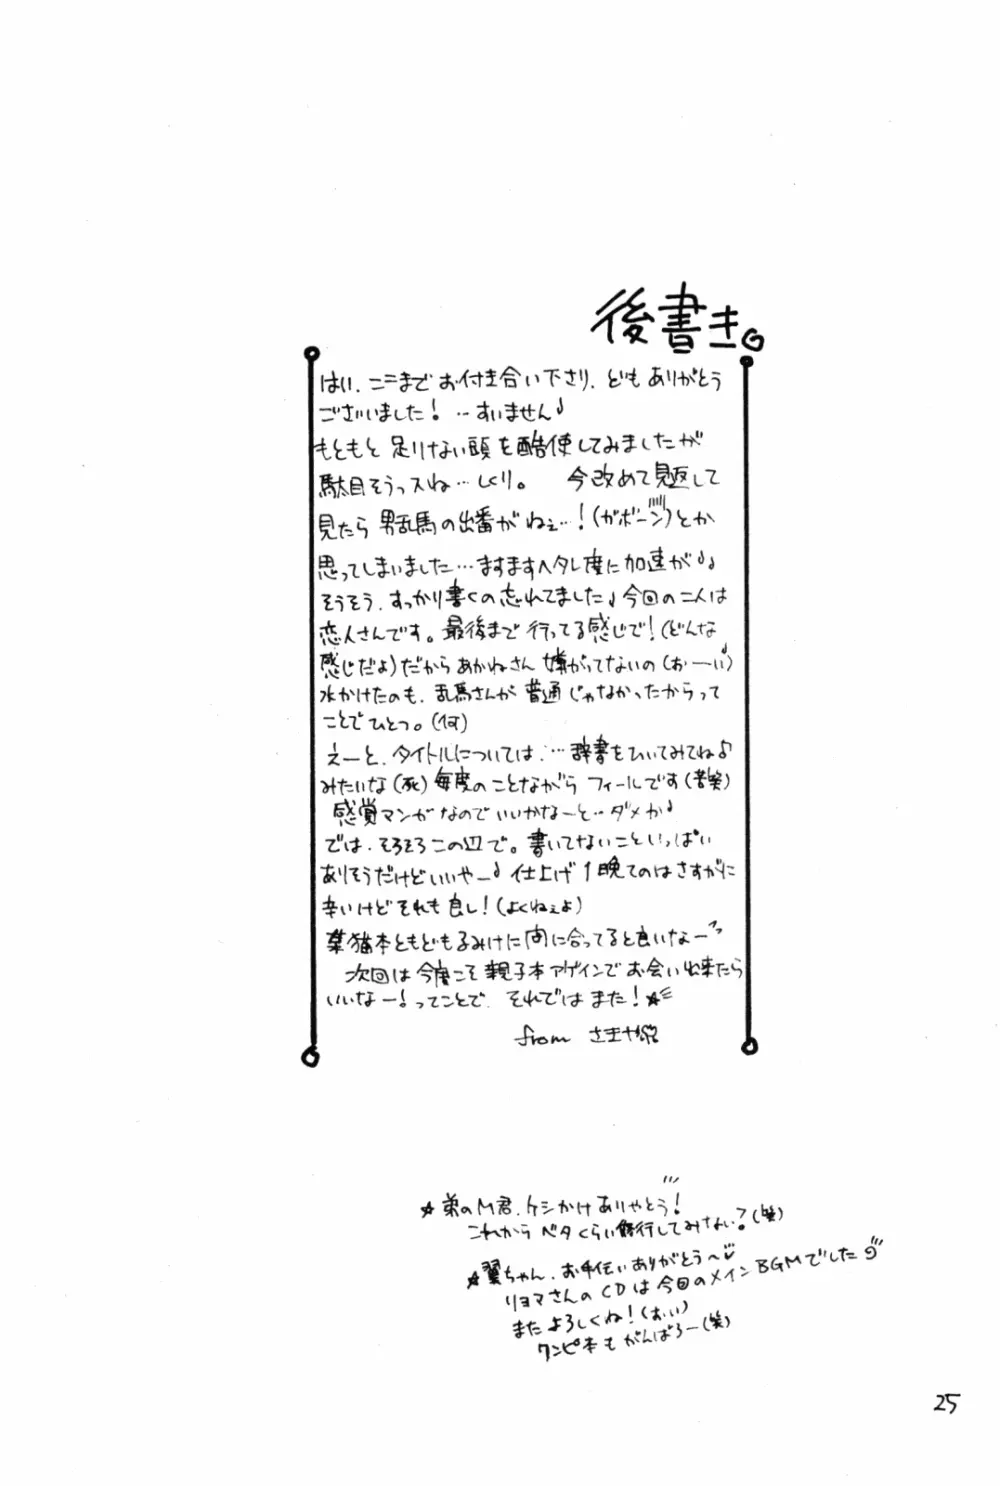 後書き。
はい、ここまでお付き合い下さり、どもありがとう
ございました！…すいません♪
もともと足りない頭を酷使してみましたが
駄目そうっスね…しくり。 今改めて見返して
見たら男乱馬の出番がねぇ…！(ガボーン)とか
思ってしまいました…ますますヘタレ度に加速が♪
そうそう、すっかり書くの忘れてました♪今回の二人は
恋人さんです。最後まで行ってる感じで！(どんな
感じだよ)だからあかねさん嫌がってないの(おーい)
水かけたのも、乱馬さんが普通じゃなかったからって
ことでひとつ。(何)
えーと、タイトルについては…辞書をひいてみてね♪
みたいな(死)毎度のことながらフィールです(苦笑)
感覚マンガなのでいいかなーと…ダメか♪
では、そろそろこの辺で。書いてないこといっぱい
ありそうだけどいいやー♪仕上げ1晩てのはさすがに
辛いけどそれも良し！(よくねぇよ)
葉猫本ともどもるみけに間に合ってると良いなーっ
次回は今度こそ親子本アゲインでお会い出来たら
いいなー！ってことで、それではまた！★
from さまや
★弟のM君、ケシかけありやとう！
これからベタくらい修行してみない？(笑)
★翼ちゃん、お手伝いありがとう〜♡
リョマさんのCDは今回のメインBGMでした
またよろしくね！(おい)
ワンピ本もがんばろー(笑)
25